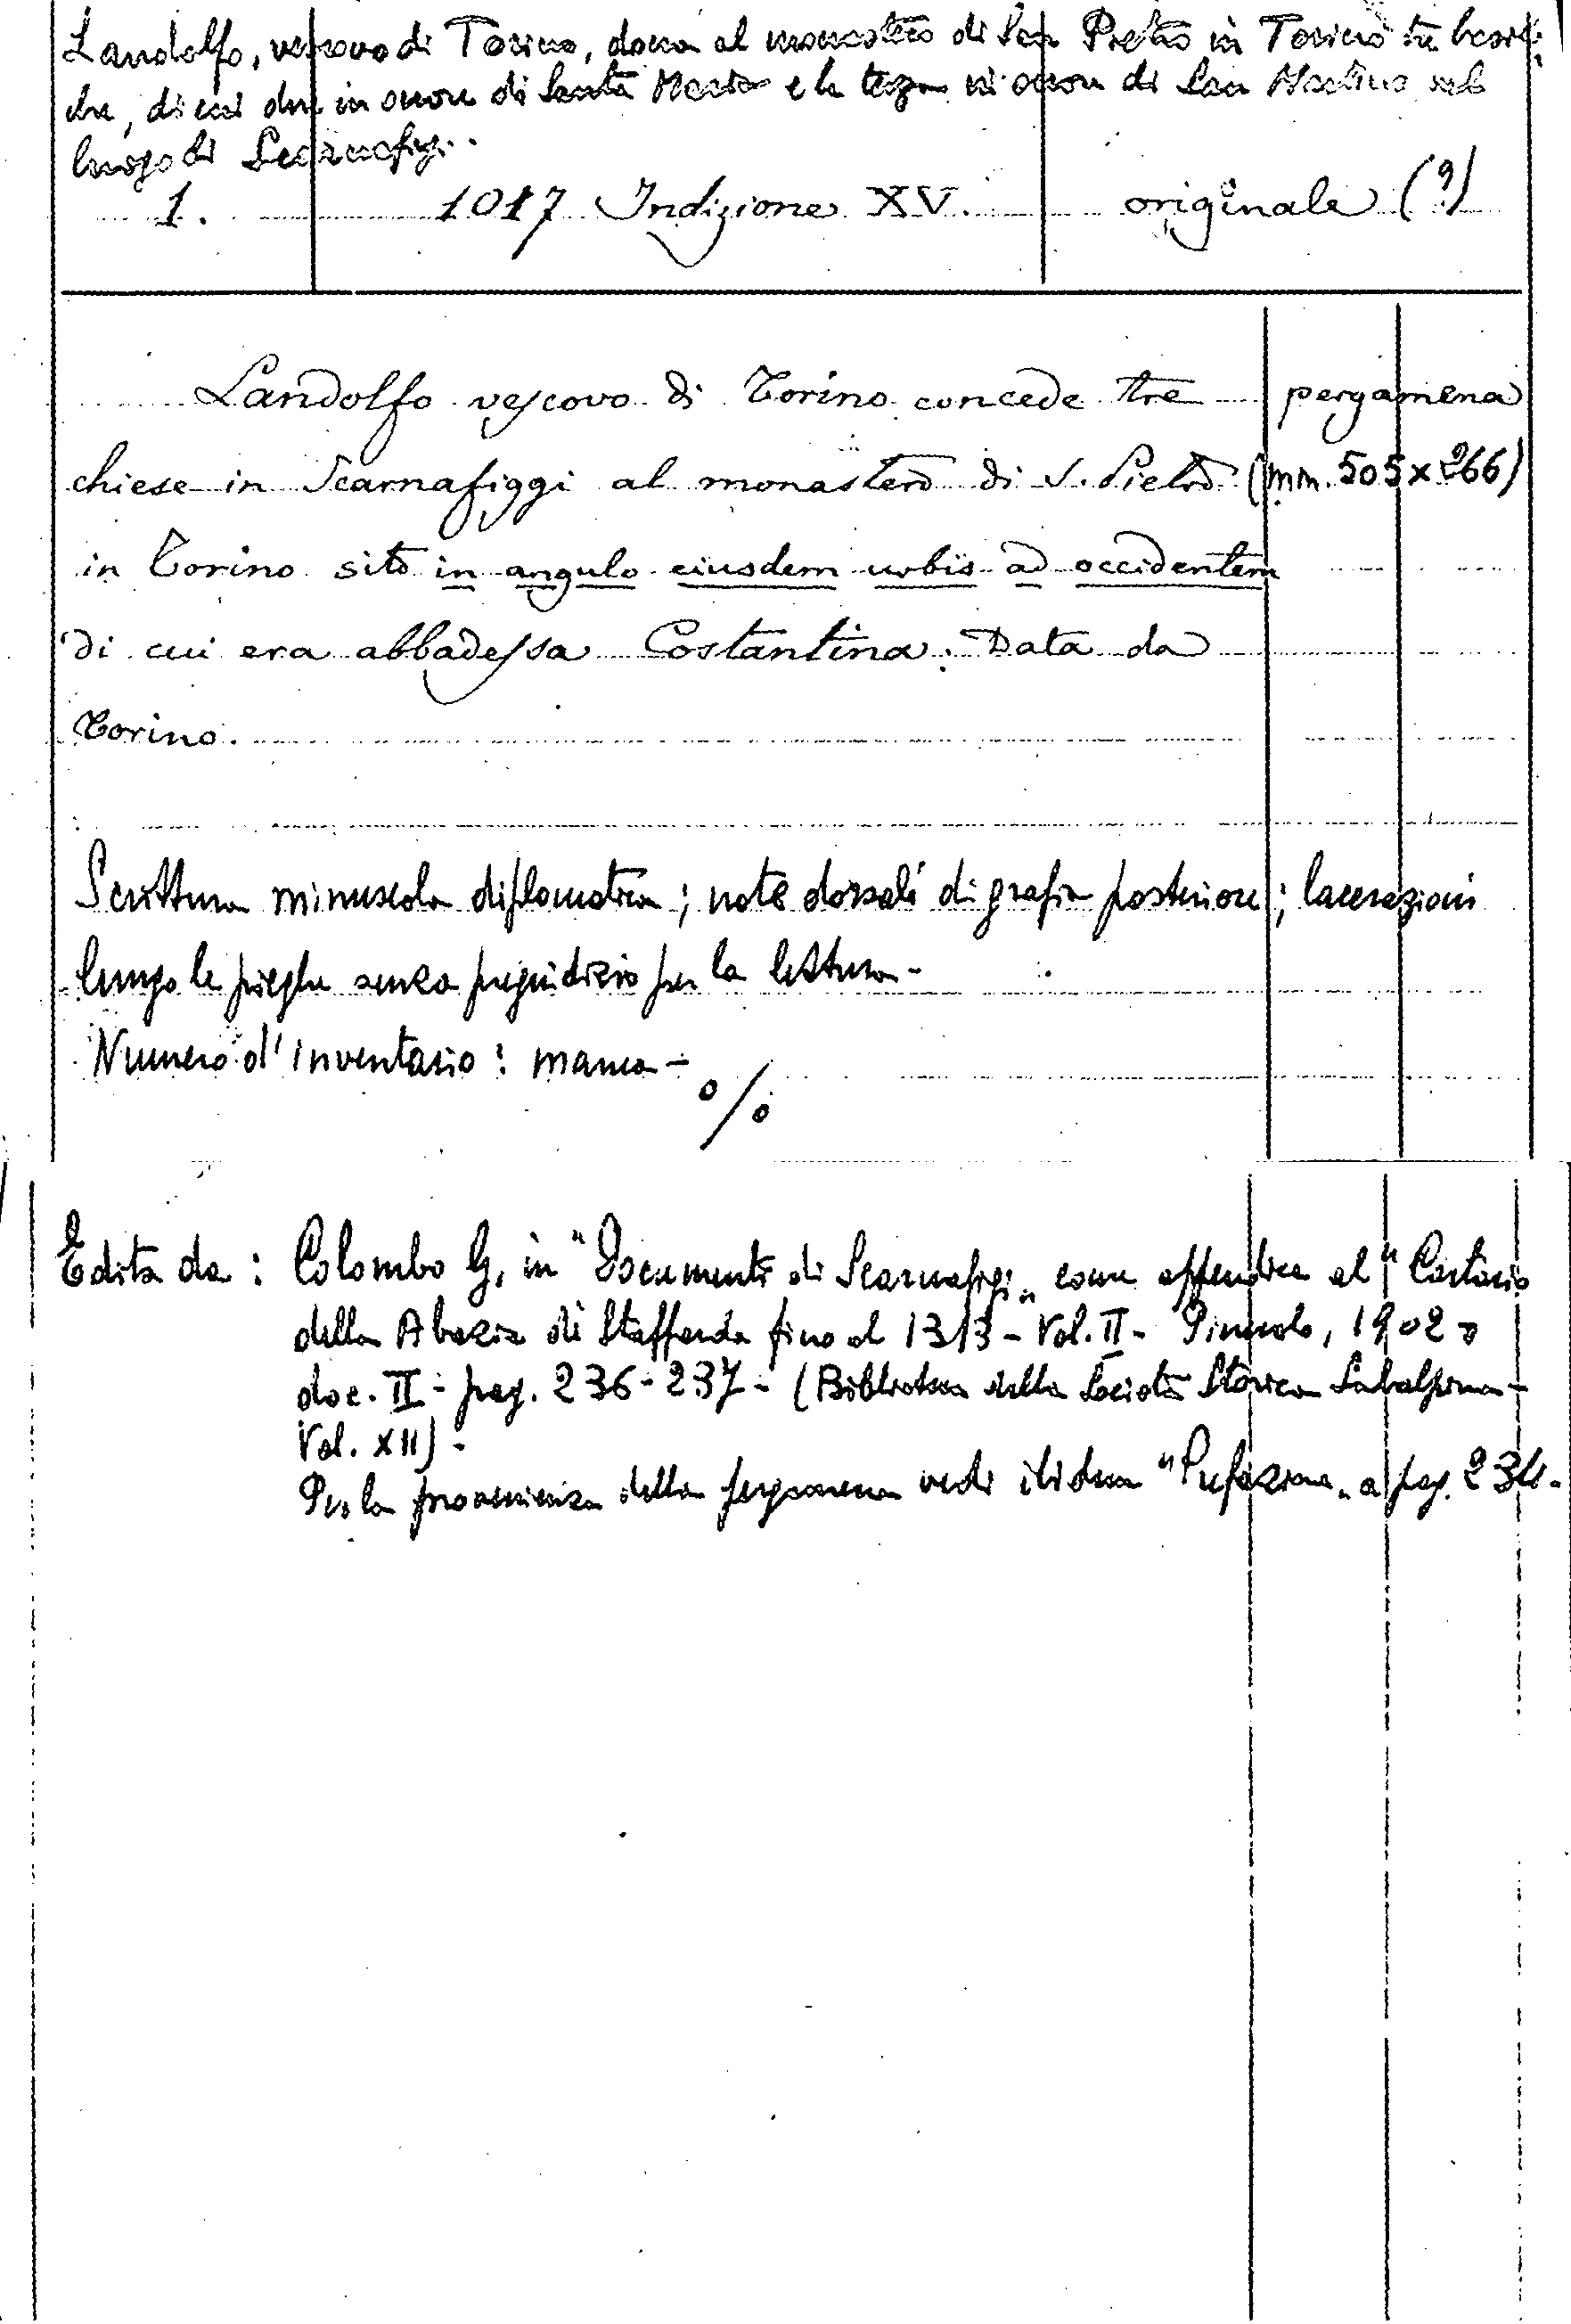 Landolfo, vescovo di Torino, dona al monastero di San Pietro in Torino tre basili-
che, di cui due in onore di Santa Maria e la terza in onore di San Martino nel
luogo di Scarnafigi.
1. 1017 Indizione XV. originale (?)
Landolfo vescovo di Torino concede tre pergamena
chiese in Scarnafiggi al monastero di S. Pietro (mm. 505 x 266)
in Torino sito in angulo eiusdem urbis ad occidentem
di cui era abbadessa Costantina. Data da
Torino.
Scrittura minuscola diplomatica; note dorsali di grafia posteriore; lacerazioni
lungo le pieghe senza pregiudizio per la lettura -
Numero d'inventario: manca -
%
Edita da: Colombo G, in "Documenti di Scarnafigi" come appendice al "Cartario
della Abazia di Staffarda fino al 1313 - Vol. II - Pinerolo, 1902 -
doc. II - pag. 236-237 - (Biblioteca della Società Storica Subalpina -
Vol. XII) -
Per la provenienza della pergamena vedi ibidem "Prefazione" a pag. 234.